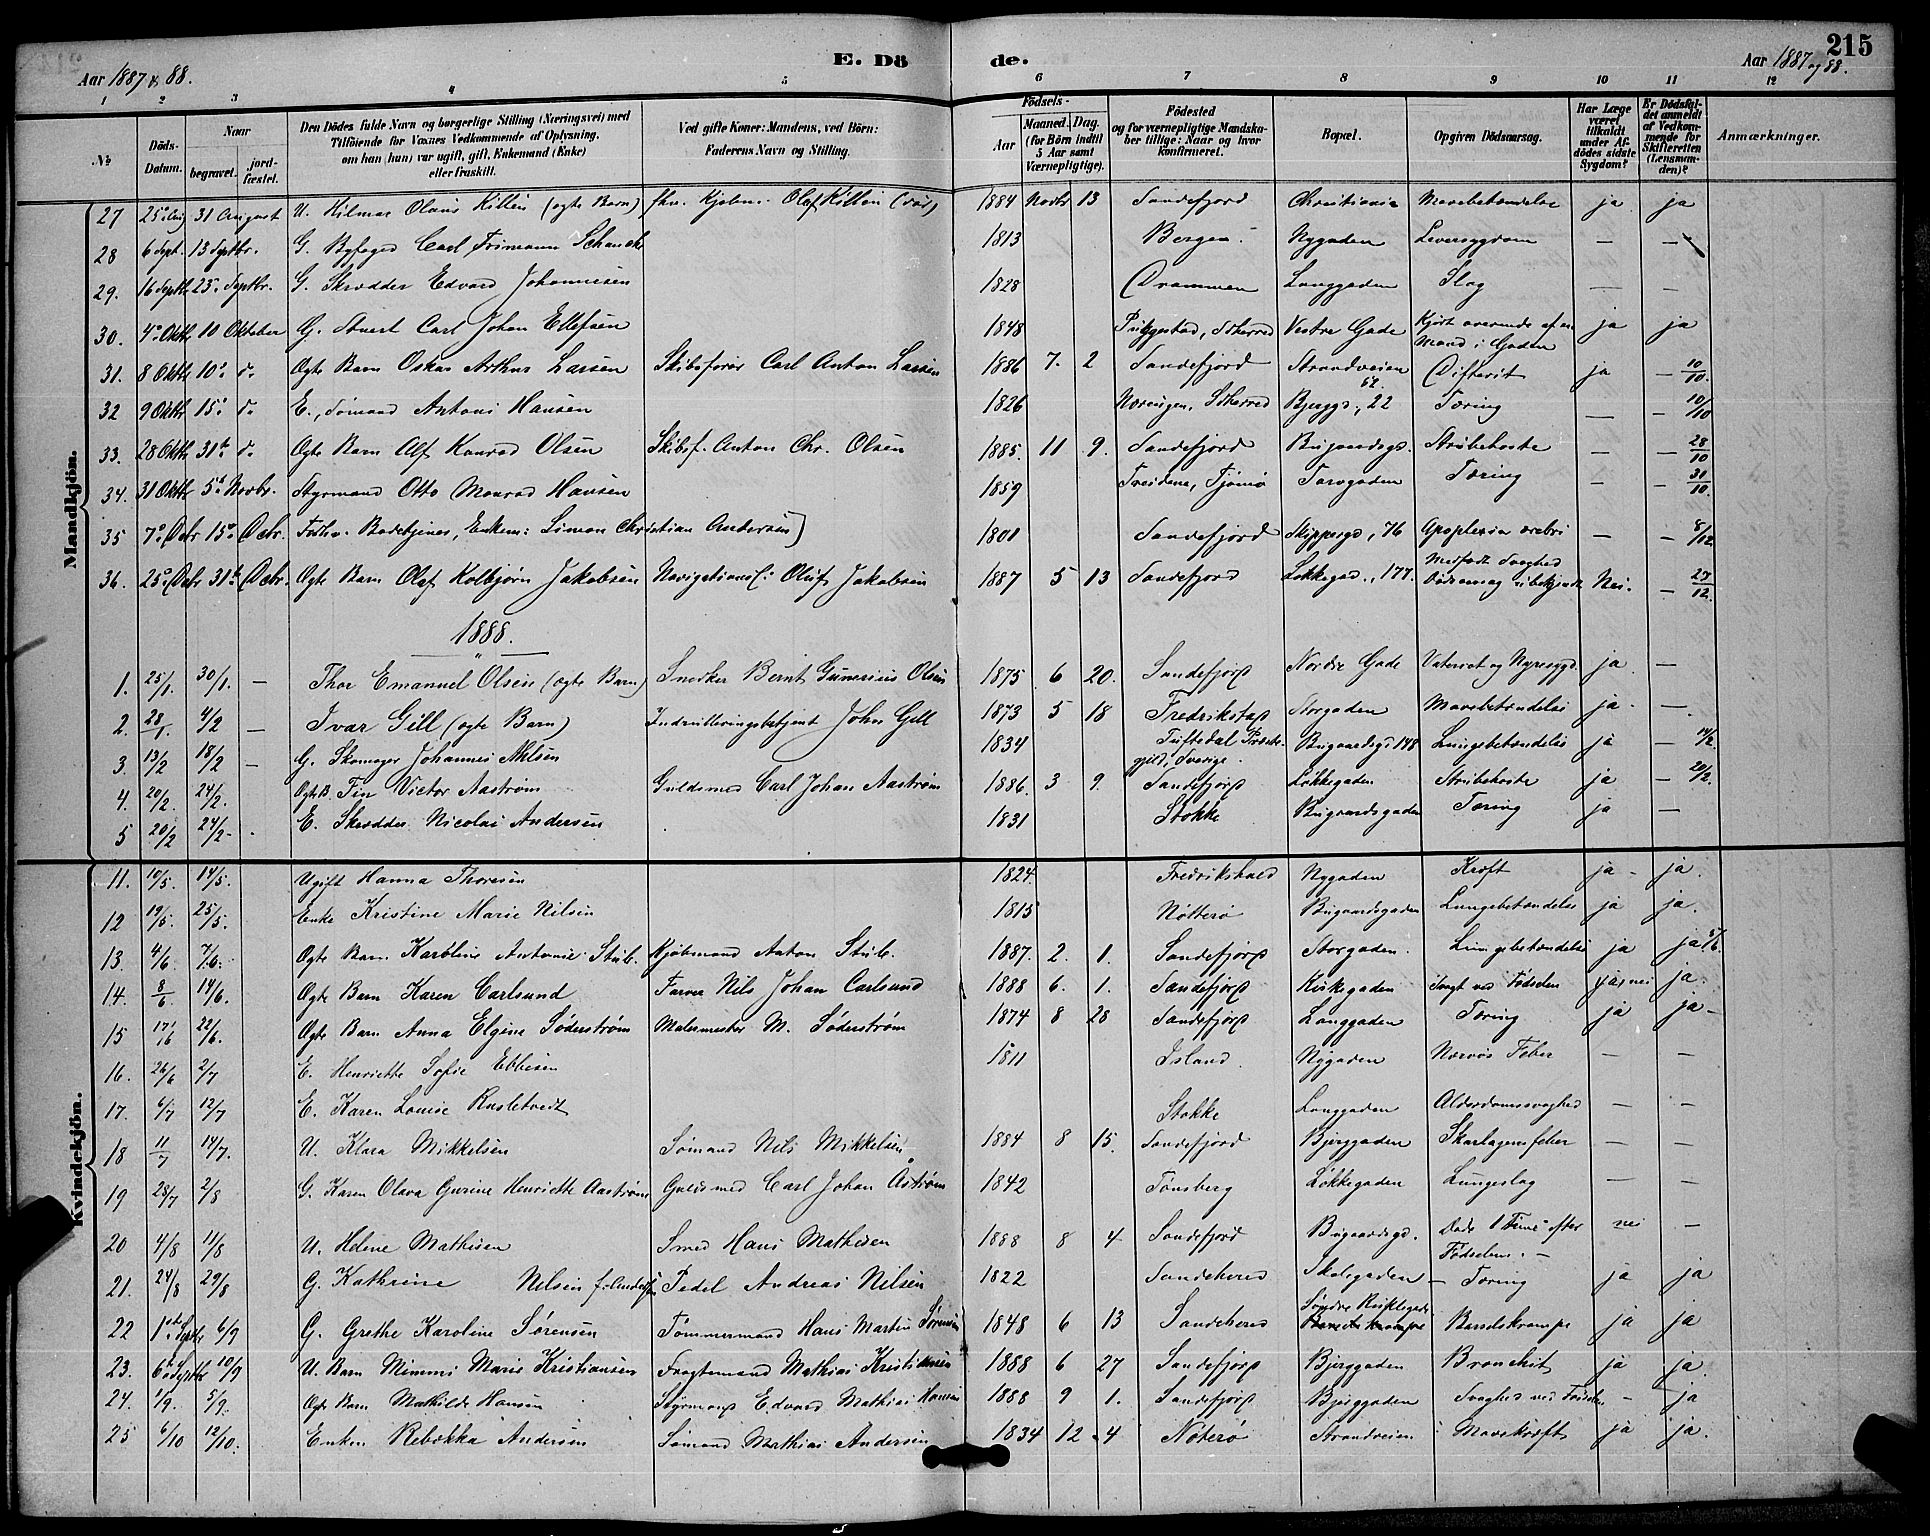 E. Dö de.
215
Aar 1887 & 88.
Aar 1887 og 88.
1 2 3 4 5 6 7 8 9 10 11 12
№
Döds-Datum.
Naar
begravet.
jord-fæstet.
Den Dödes fulde Navn og borgerlige Stilling (Næringsvei) med
Tilföiende for Voxnes Vedkommende af Oplysning,
om han (hun) var ugift, gift, Enkemand (Enke)
eller fraskilt.
Ved gifte Koner: Mandens, ved Börn:
Faderens Navn og Stilling.
Födsels-
Aar
Maaned. Dag.
(for Börn indtil
5 Aar samt
Værnepligtige).
Födested
og for værnepligtige Mandska-
ber tillige: Naar og hvor
konfirmeret.
Bopæl.
Opgiven Dödsaarsag.
Har Læge
været
tilkaldt
under Af-
dödes sidste
Sygdom?
Er Dödsfal-
det anmeldt
af Vedkom-
mende for
Skifteretten
(Lensman-
den)?
Anmærkninger.
Mandkjön.
27 25 Aug 31 August U. Hilmar Olaus Killen (ægte Barn) Kjøbm. Olaf Killen 1884 Novbr 13 Sandefjord Christiania Mavebetændelse ja ja
28 6 Sept. 13 Septbr. G. Byfoged Carl Frimann Schanche 1813 Bergen Nygaden Leversygdom — —
29. 16 Septbr 23 Septbr. G. Skrædder Edvard Johannesen 1828 Drammen Langgaden Slag — —
30. 4 Oktbr 10 Oktober G. Stuert Carl Johan Ellefsen 1848 Sdherred Vestre Gade Kjørt overende af en Mand i Gaden ja ja
31. 8 Oktbr 10 d. Ægte Barn Oskar Arthur Larsen Skibsfører Carl Anton Larsen 1886 7. 2 Sandefjord Strandveien Difterit ja — 10/10.
32 9 Oktbr 15 d. E., Sømand Antoni Hansen 1826 Sdherred Bjergg., 22 Tæring — 10/10
33. 28 Oktbr 31te d. Ægte Barn Alf Konrad Olsen Skibsf. Anton Chr. Olsen 1885. 11 9. Sandefjord Bugaardsgd. Strubehoste — — 28/10
34. 31 Oktbr 5te Novbr. Styrmand Otto Monrad Hansen 1859 Tjømø Torvgaden Tæring — — 31/10.
35 7 Dcbr 15 Dcbr. Badebetjener, Enkem: Simon Christian Andersen 1801 Sandefjord Skippergd, 76 Apoplexia cerebri — — 8/12
36. 25 Dcbr 31te Dcbr. Ægte Barn Olaf Kolbjørn Jakobsen Navigationsl: Oluf Jakobsen 1887 5 13 Sandefjord Løkkegad., 177. Medfødt Svaghed Dødsaarsag ubekjendt Nei. — 27/12.
1888.
1. 25/1. 30/1. — Thor Emanuel Olsen (ægte Barn) Snedker Bernt Gunerius Olsen 1875 6 20. Sandefjord Nordre Gade Vatersot og Nyresygd ja —
2. 28/1 4/2 — Ivar Gill (ægte Barn) Indrulleringsbetjent John Gill 1873 5 18 Fredrikstad Storgaden Mavebetændelse ja. —.
3. 13/2 18/2 — G. Skomager Johannes Nilsen 1834 Tuftedal Præste-gjeld, Sverige. Bugaardsgd 148 Lungebetændelse ja — 14/2
4. 20/2 24/2. Ægte B. Fin Victor Aastrøm Guldsmed Carl Johan Aastrøm 1886. 3 9. Sandefjord Løkkegaden Strubehoste ja — 20/2.
5 20/2 24/2 E. Skrædder Nicolai Andersen 1831 Stokke Bugaardsgaden Tæring ja —
Kvindekjön.
11. 10/5. 14/5. Ugift Hanna Thoresen 1824. Fredrikshald Nygaden Kræft ja ja.
12 19/5. 25/5. Enke Kristine Marie Nilsen 1815 Nøtterø Bugaardsgaden Lungebetændelse ja ja.
13. 4/6. 7/6. Ægte Barn Karoline Antonie Stub. Kjøbmand Anton Stub. 1887. 2. 1. Sandefjord Storgaden. Lungebetændelse ja ja 5/6.
14. 8/6 14/6. Ægte Barn Karen Carlsund Farver Nils Johan Carlsund 1888 6. 1. Sandefjord Kirkegaden Svagt ved Fødselen nei ja.
15 17/6 22/6. Ægte Barn Anna Elgine Søderstrøm Malermester M. Søderstrøm 1874 8 28 Sandefjord Langgaden Tæring ja ja
16. 26/6 2/7 E. Henriette Sofie Ebbesen 1811 Island Nygaden Nervøs Feber — —
17. 6/7 12/7 E. Karen Louise Stokke Langgaden Alderdomssvaghed — —
18 11/7 14/7. U. Klara Mikkelsen Sømand Nils Mikkelsen 1884 8 15. Sandefjord Bjerggaden Skarlagensfeber — —
19 28/7 2/8 G. Karen Olava Gurine Henriette Aastrøm Guldsmed Carl Johan Åstrøm 1842 Tønsberg Løkkegaden Lungeslag — —
20 4/8 11/8 U. Helene Mathisen Smed Hans Mathisen 1888 8 4 Sandefjord Bugaardsgd. Døde 1 Time efter Fødselen. nei —
21. 24/8 29/8 G. Kathrine Nilsen f. Andersen Pedel Andreas Nilsen 1822 Sandeherred Skolegaden Tæring ja ja
22 1ste Septbr 6/9 G. Grethe Karoline Sørensen Tømmermand Hans Martin Sørensen 1848 6 13 Sandeherred Søndre Kirkegade Barselskrampe ja ja
23. 6te Septbr 10/9 U. Barn Mimmi Marie Kristiansen Fragtemand Mathias Kristiansen 1888 6 27 Sandefjord Bjerggaden Bronchit ja ja.
24. 1/9. 5/9. Ægte Barn Mathilde Hansen Styrmand Edvard Mathias Hansen 1888 9 1. Sandefjord Bjerggaden Svaghed ved Fødselen — ja
25 6/10 12/10. Enken Rebekka Andersen Sømand Mathias Andersen 1834 12 4 Nøterø Strandveien Mavekræft ja ja.